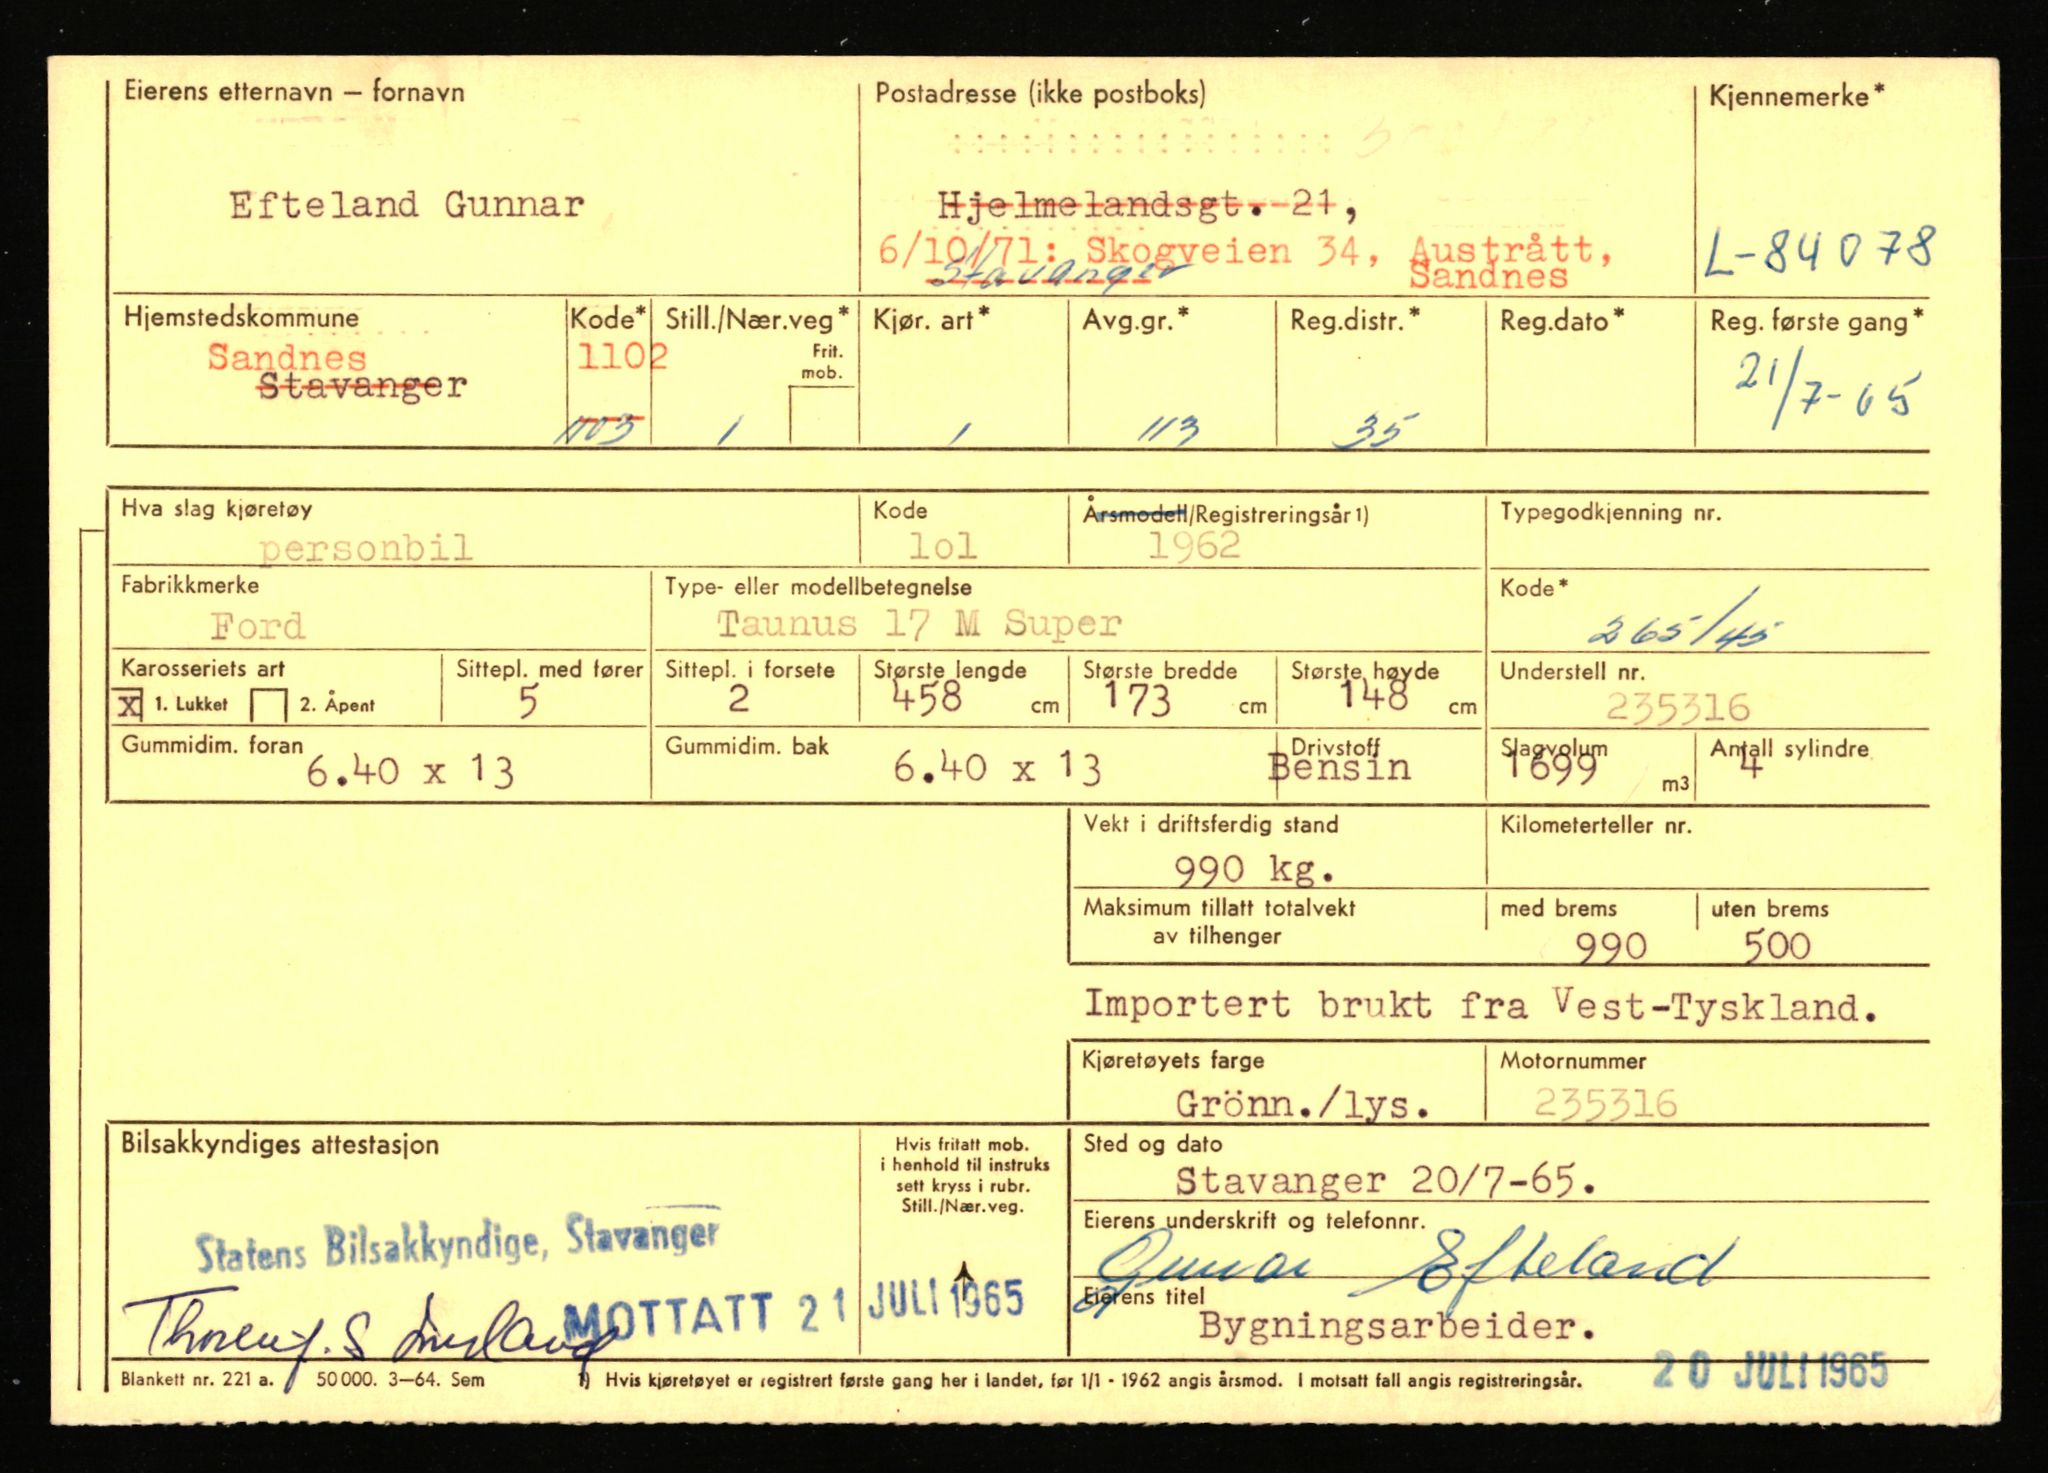 Eierens etternavn — fornavn
Postadresse (ikke postboks)
Kjennemerke*
Efteland Gunnar
Hjelmelandsgt. 21,
6/10/71: Skogveien 34, Austrått,
Stavanger
Sandnes
L-84078
Hjemstedskommune
Kode*
Still./Nær.veg*
Kjør. art*
Avg.gr.*
Reg.distr.*
Reg.dato*
Reg. første gang*
Sandnes
1102
Frit.
mob.
Stavanger
1103
1
1
113
35
21/7-65
Hva slag kjøretøy
Kode
Årsmodell/Registreringsår1)
Typegodkjenning nr.
personbil
lol
1962
Fabrikkmerke
Type- eller modellbetegnelse
Kode*
Ford
Taunus 17 M Super
265/45
Karosseriets art
Sittepl. med fører
Sittepl. i forsete
Største lengde
Største bredde
Største høyde
Understell nr.
X 1. Lukket 2. Åpent
5
2
458 cm
173 cm
148 cm
235316
Gummidim. foran
Gummidim. bak
Drivstoff
Slagvolum
Antall sylindre
6.40 x 13
6.40 x 13
Bensin
1699 m3
4
Vekt i driftsferdig stand
Kilometerteller nr.
990 kg.
Maksimum tillatt totalvekt
av tilhenger
med brems
uten brems
990
500
Importert brukt fra Vest-Tyskland.
Kjøretøyets farge
Motornummer
Grönn./lys.
235316
Bilsakkyndiges attestasjon
Hvis fritatt mob.
i henhold til instruks
sett kryss i rubr.
Still./Nær.veg.
Sted og dato
Stavanger 20/7-65.
Eierens underskrift og telefonnr.
Statens Bilsakkyndige, Stavanger
Gunnar Efteland
MOTTATT 21 JULI 1965
Eierens titel
Bygningsarbeider.
Blankett nr. 221 a. 50 000. 3—64. Sem
1) Hvis kjøretøyet er registrert første gang her i landet, før 1/1 - 1962 angis årsmod. I motsatt fall angis registreringsår.
20 JULI 1965